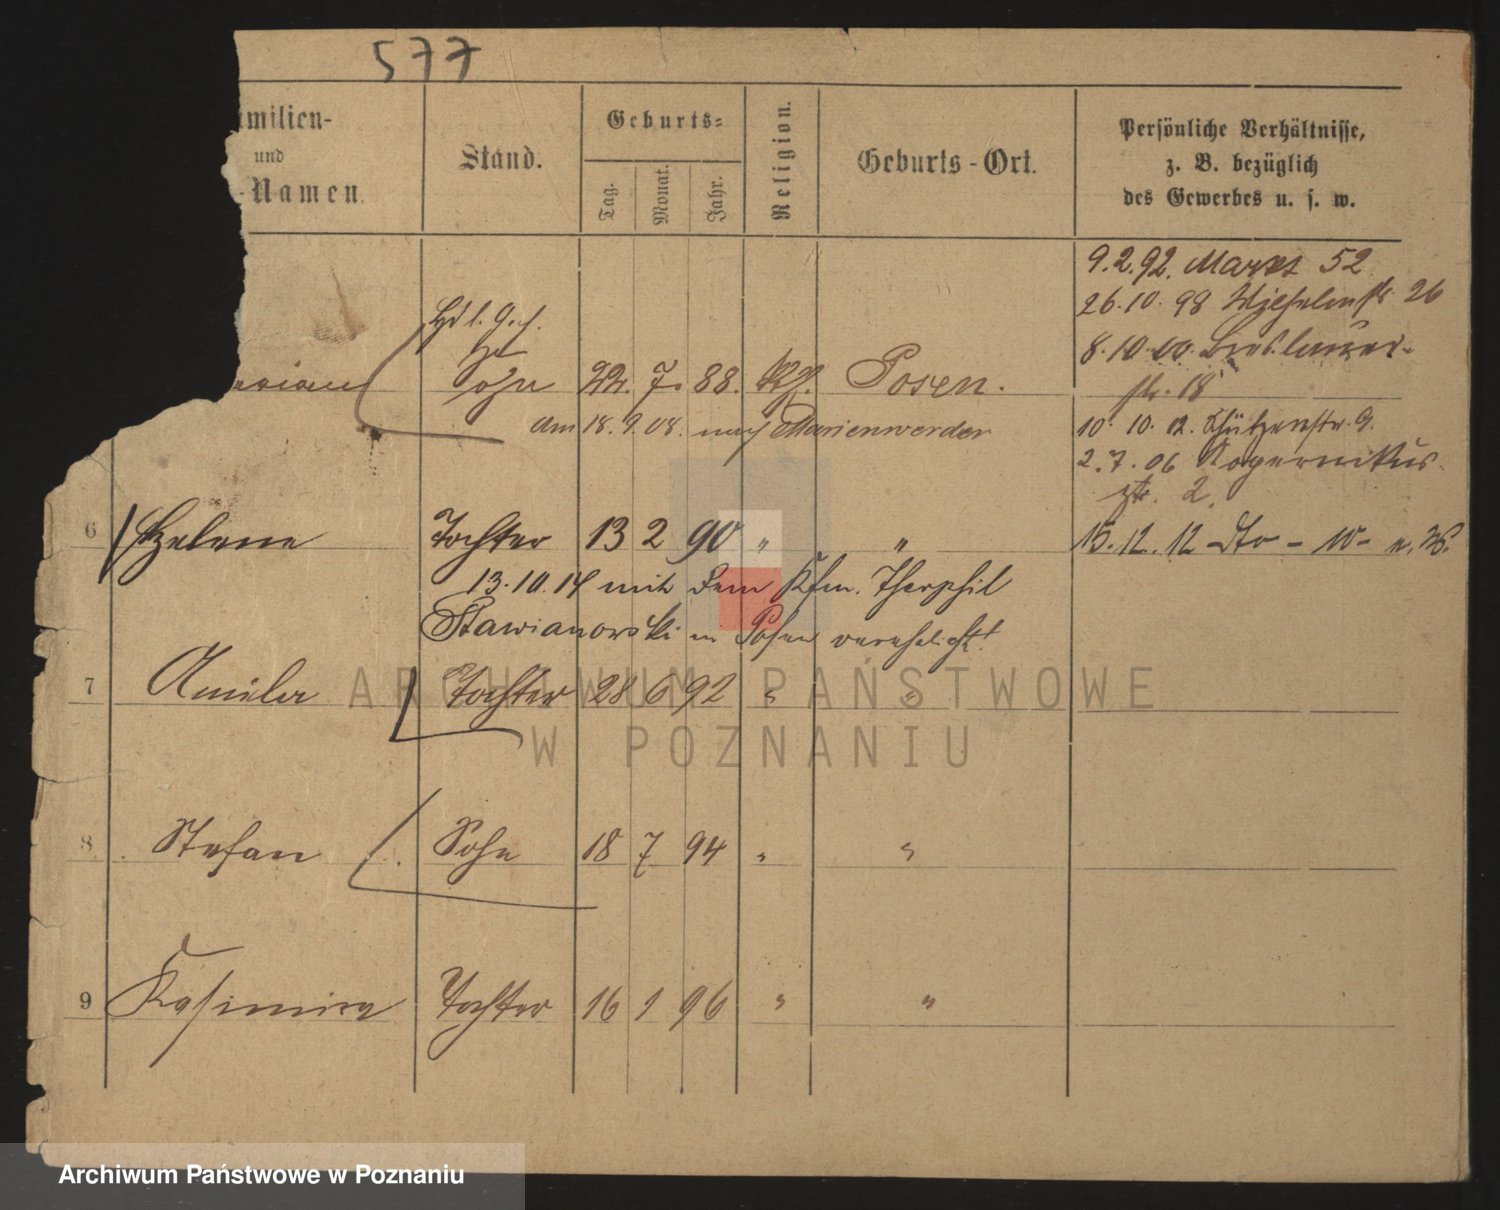 577
amilien-
und
-Namen.
Stand.
Geburts-
Tag.
Monat.
Jahr.
Religion.
Geburts-Ort.
Persönliche Verhältnisse,
z. B. bezüglich
des Gewerbes u. s. w.
9.2.92. Markt 52
26.10.98 Wilhelmstr. 26
8.10.00. Breslauer-
str. 18
erian Sohn 22. 7. 88. Kth. Posen.
am 18.9.08. nach Marienwerder
10. 10. 02. Schützenstr. 9.
2.7.06 Kopernikus-
str. 2.
6 Helene Tochter 13 2 90 " "
15.12.12 dto - 10-
13.10.14 mit dem Kfm. Theophil
Stawianowski in Posen verehelicht.
7 Amilia Tochter 28 6 92 " "
ARCHIWUM PAŃSTWOWE
W POZNANIU
8 Stefan Sohn 18 7 94 " "
9 Kasimira Tochter 16 1 96 " "
Archiwum Państwowe w Poznaniu